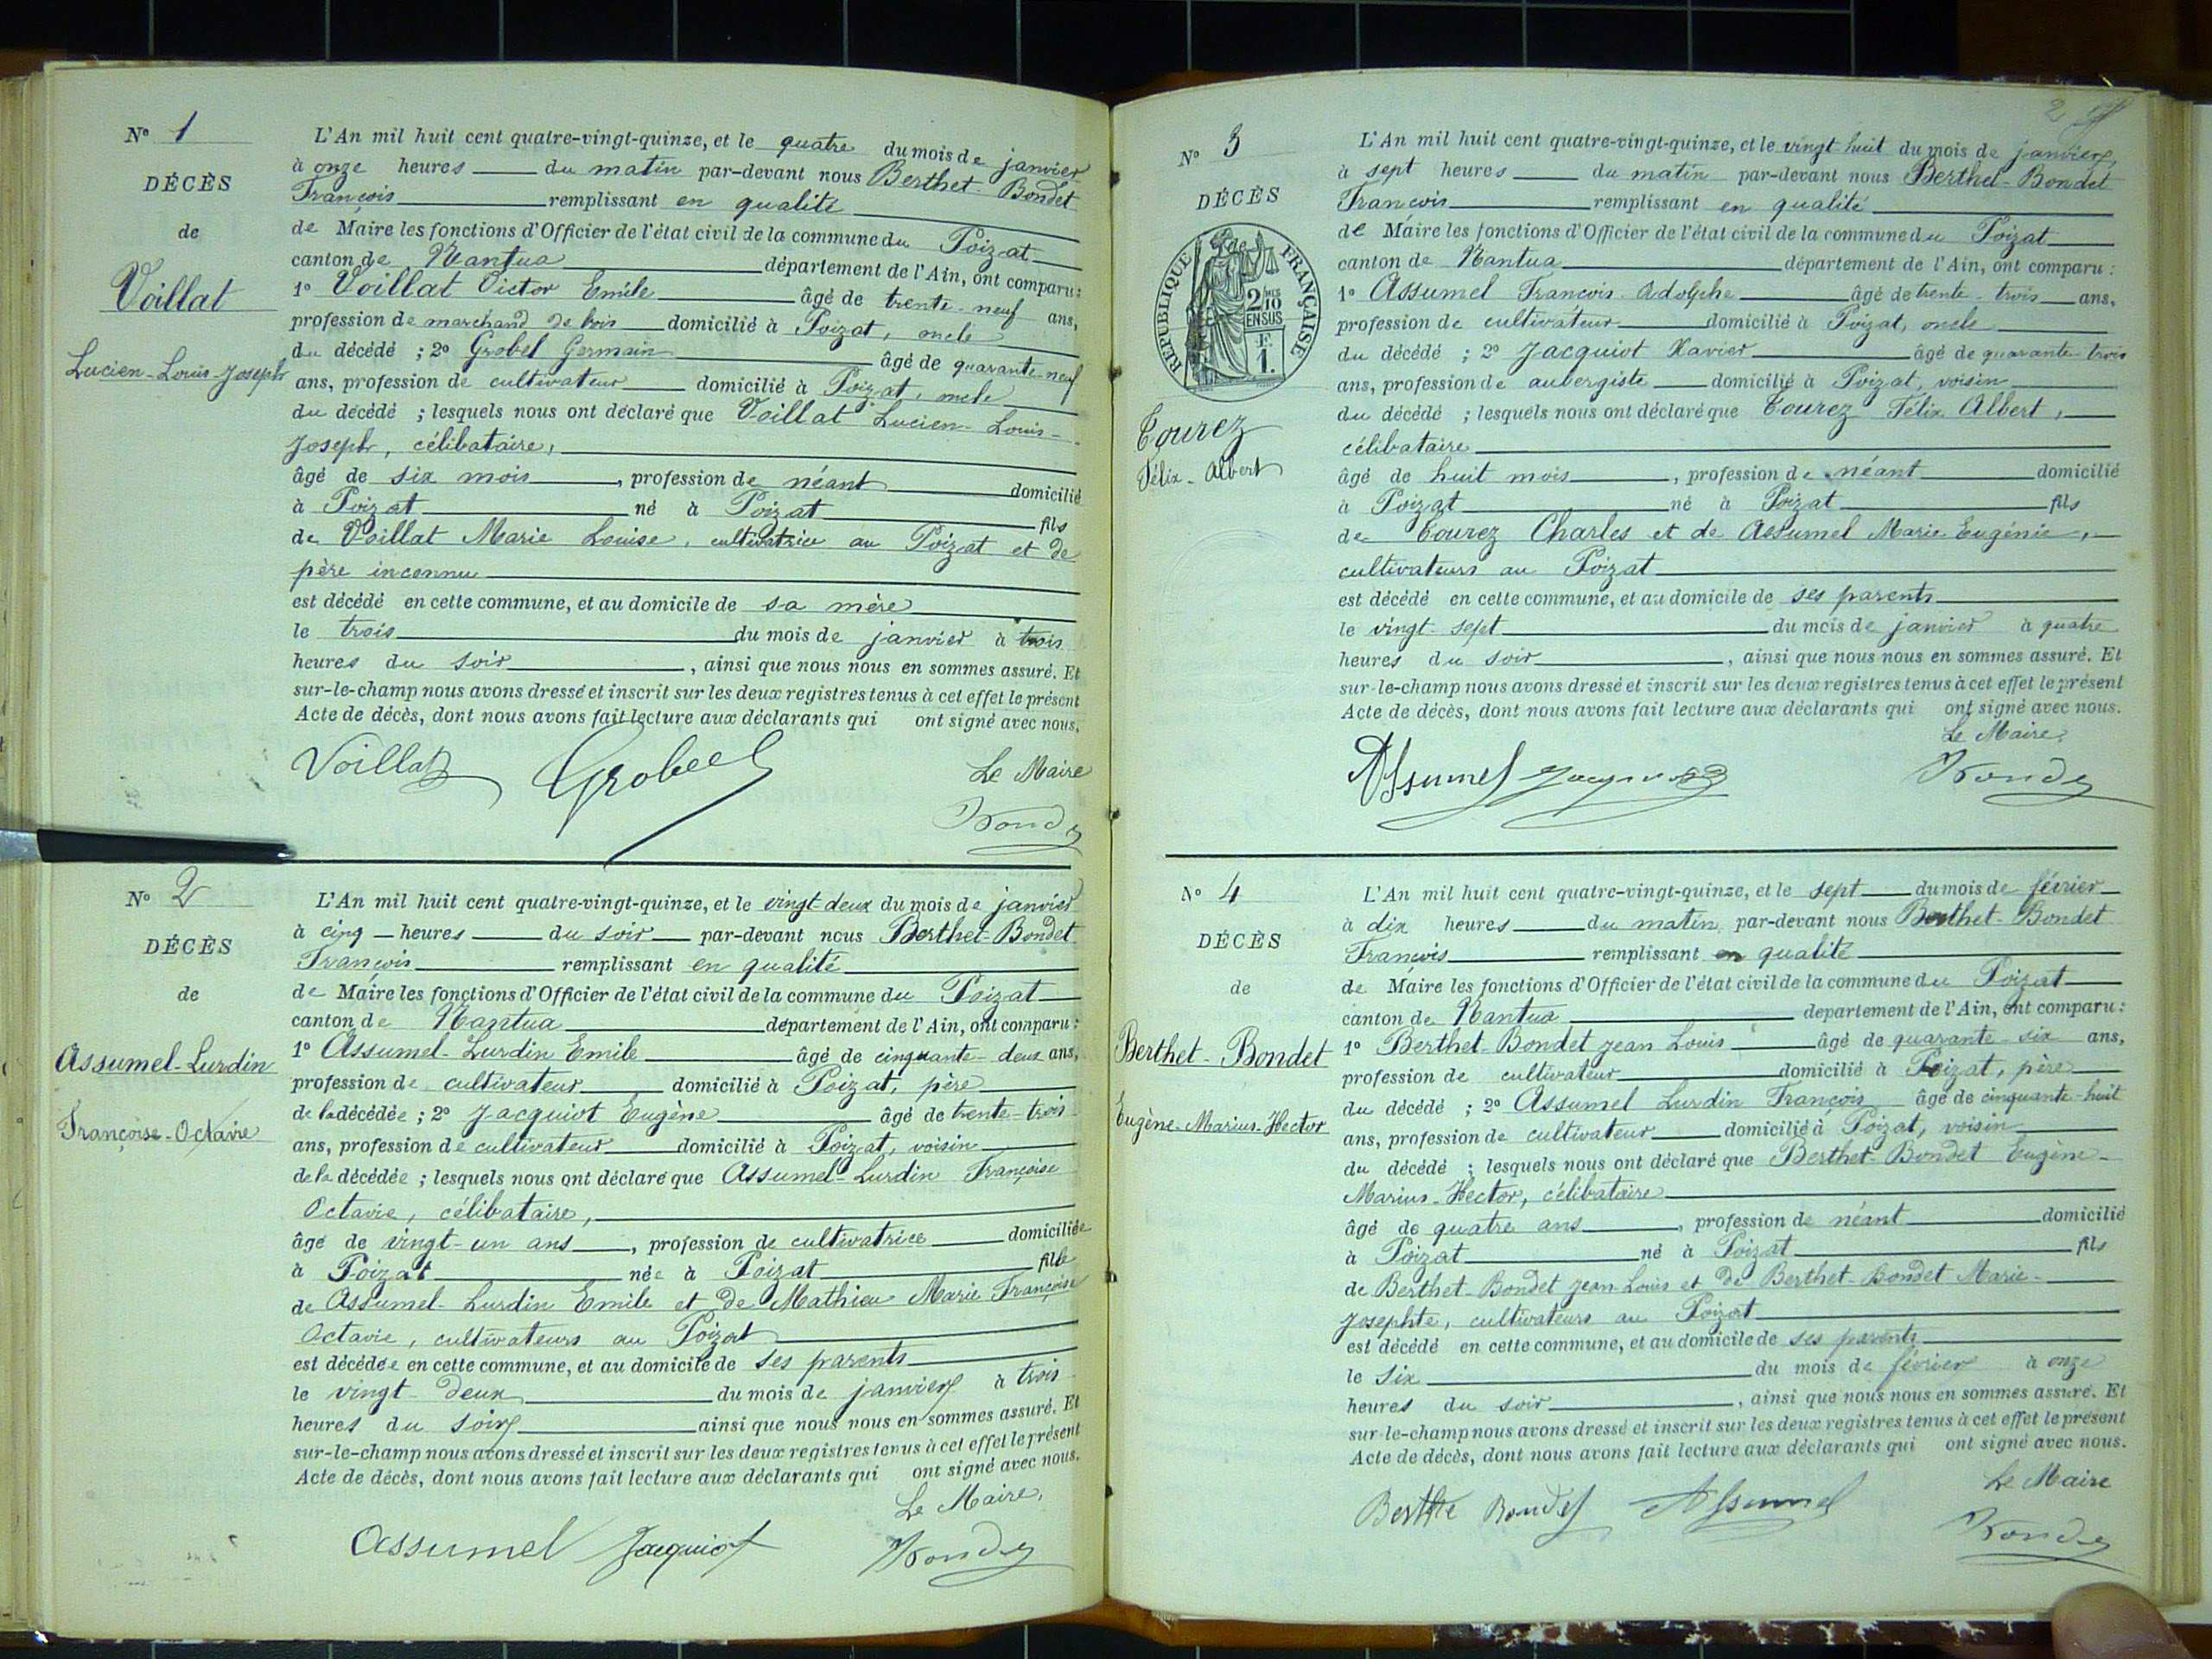 N° 1
DÉCÈS
de
Voillat
Lucien-Louis-Joseph
L'An mil huit cent quatre-vingt-quinze, et le quatre du mois de janvier
à onze heures du matin par-devant nous Berthet-Bondet
François remplissant en qualité
de Maire les fonctions d'Officier de l'état civil de la commune du Poizat
canton de Nantua département de l'Ain, ont comparu :
1° Voillat Victor Emile âgé de trente-neuf ans,
profession de marchand de bois domicilié à Poizat, oncle
du décédé ; 2° Grobel Germain âgé de quarante-neuf
ans, profession de cultivateur domicilié à Poizat, oncle
du décédé ; lesquels nous ont déclaré que Voillat Lucien-Louis-
Joseph, célibataire,
âgé de six mois, profession de néant domicilié
à Poizat né à Poizat fils
de Voillat Marie Louise, cultivatrice au Poizat et de
père inconnu
est décédé en cette commune, et au domicile de sa mère
le trois du mois de janvier à trois
heures du soir, ainsi que nous nous en sommes assuré. Et
sur-le-champ nous avons dressé et inscrit sur les deux registres tenus à cet effet le présent
Acte de décès, dont nous avons fait lecture aux déclarants qui ont signé avec nous.
Voillat Grobel Le Maire
Bondet
N° 2
DÉCÈS
de
Assumel-Lurdin
Françoise-Octavie
L'An mil huit cent quatre-vingt-quinze, et le vingt deux du mois de janvier
à cinq heures du soir par-devant nous Berthet-Bondet
François remplissant en qualité
de Maire les fonctions d'Officier de l'état civil de la commune du Poizat
canton de Nantua département de l'Ain, ont comparu :
1° Assumel-Lurdin Emile âgé de cinquante-deux ans,
profession de cultivateur domicilié à Poizat, père
de la décédée ; 2° Jacquiot Eugène âgé de trente-trois
ans, profession de cultivateur domicilié à Poizat, voisin
de la décédée ; lesquels nous ont déclaré que Assumel-Lurdin Françoise
Octavie, célibataire,
âgé de vingt-un ans, profession de cultivatrice domiciliée
à Poizat née à Poizat fille
de Assumel-Lurdin Emile et de Mathieu Marie Françoise
Octavie, cultivateurs au Poizat
est décédée en cette commune, et au domicile de ses parents
le vingt-deux du mois de janvier à trois
heures du soir ainsi que nous nous en sommes assuré. Et
sur-le-champ nous avons dressé et inscrit sur les deux registres tenus à cet effet le présent
Acte de décès, dont nous avons fait lecture aux déclarants qui ont signé avec nous.
Le Maire,
Assumel Jacquiot Bondet
2
N° 3
DÉCÈS
de
RÉPUBLIQUE FRANÇAISE
2/10 EN SUS
F. 1.
Tourez
Félix-Albert
L'An mil huit cent quatre-vingt-quinze, et le vingt huit du mois de janvier,
à sept heures du matin par-devant nous Berthet-Bondet
François remplissant en qualité
de Maire les fonctions d'Officier de l'état civil de la commune du Poizat
canton de Nantua département de l'Ain, ont comparu :
1° Assumel François-Adolphe âgé de trente-trois ans,
profession de cultivateur domicilié à Poizat, oncle
du décédé ; 2° Jacquiot Xavier âgé de quarante-trois
ans, profession de aubergiste domicilié à Poizat, voisin
du décédé ; lesquels nous ont déclaré que Tourez Félix Albert,
célibataire
âgé de huit mois, profession de néant domicilié
à Poizat né à Poizat fils
de Tourez Charles et de Assumel Marie Eugénie,
cultivateurs au Poizat
est décédé en cette commune, et au domicile de ses parents
le vingt-sept du mois de janvier à quatre
heures du soir, ainsi que nous nous en sommes assuré. Et
sur-le-champ nous avons dressé et inscrit sur les deux registres tenus à cet effet le présent
Acte de décès, dont nous avons fait lecture aux déclarants qui ont signé avec nous.
Le Maire
Assumel Jacquiot Bondet
N° 4
DÉCÈS
de
Berthet-Bondet
Eugène-Marius-Hector
L'An mil huit cent quatre-vingt-quinze, et le sept du mois de février
à dix heures du matin, par-devant nous Berthet-Bondet
François remplissant en qualité
de Maire les fonctions d'Officier de l'état civil de la commune du Poizat
canton de Nantua département de l'Ain, ont comparu :
1° Berthet-Bondet Jean Louis âgé de quarante-six ans,
profession de cultivateur domicilié à Poizat, père
du décédé ; 2° Assumel Lurdin François âgé de cinquante-huit
ans, profession de cultivateur domicilié à Poizat, voisin
du décédé ; lesquels nous ont déclaré que Berthet-Bondet Eugène-
Marius-Hector, célibataire
âgé de quatre ans, profession de néant domicilié
à Poizat né à Poizat fils
de Berthet-Bondet Jean-Louis et de Berthet-Bondet Marie-
Josephte, cultivateurs au Poizat
est décédé en cette commune, et au domicile de ses parents
le six du mois de février à onze
heures du soir, ainsi que nous nous en sommes assuré. Et
sur-le-champ nous avons dressé et inscrit sur les deux registres tenus à cet effet le présent
Acte de décès, dont nous avons fait lecture aux déclarants qui ont signé avec nous.
Le Maire
Berthe Bondet Assumel Bondet